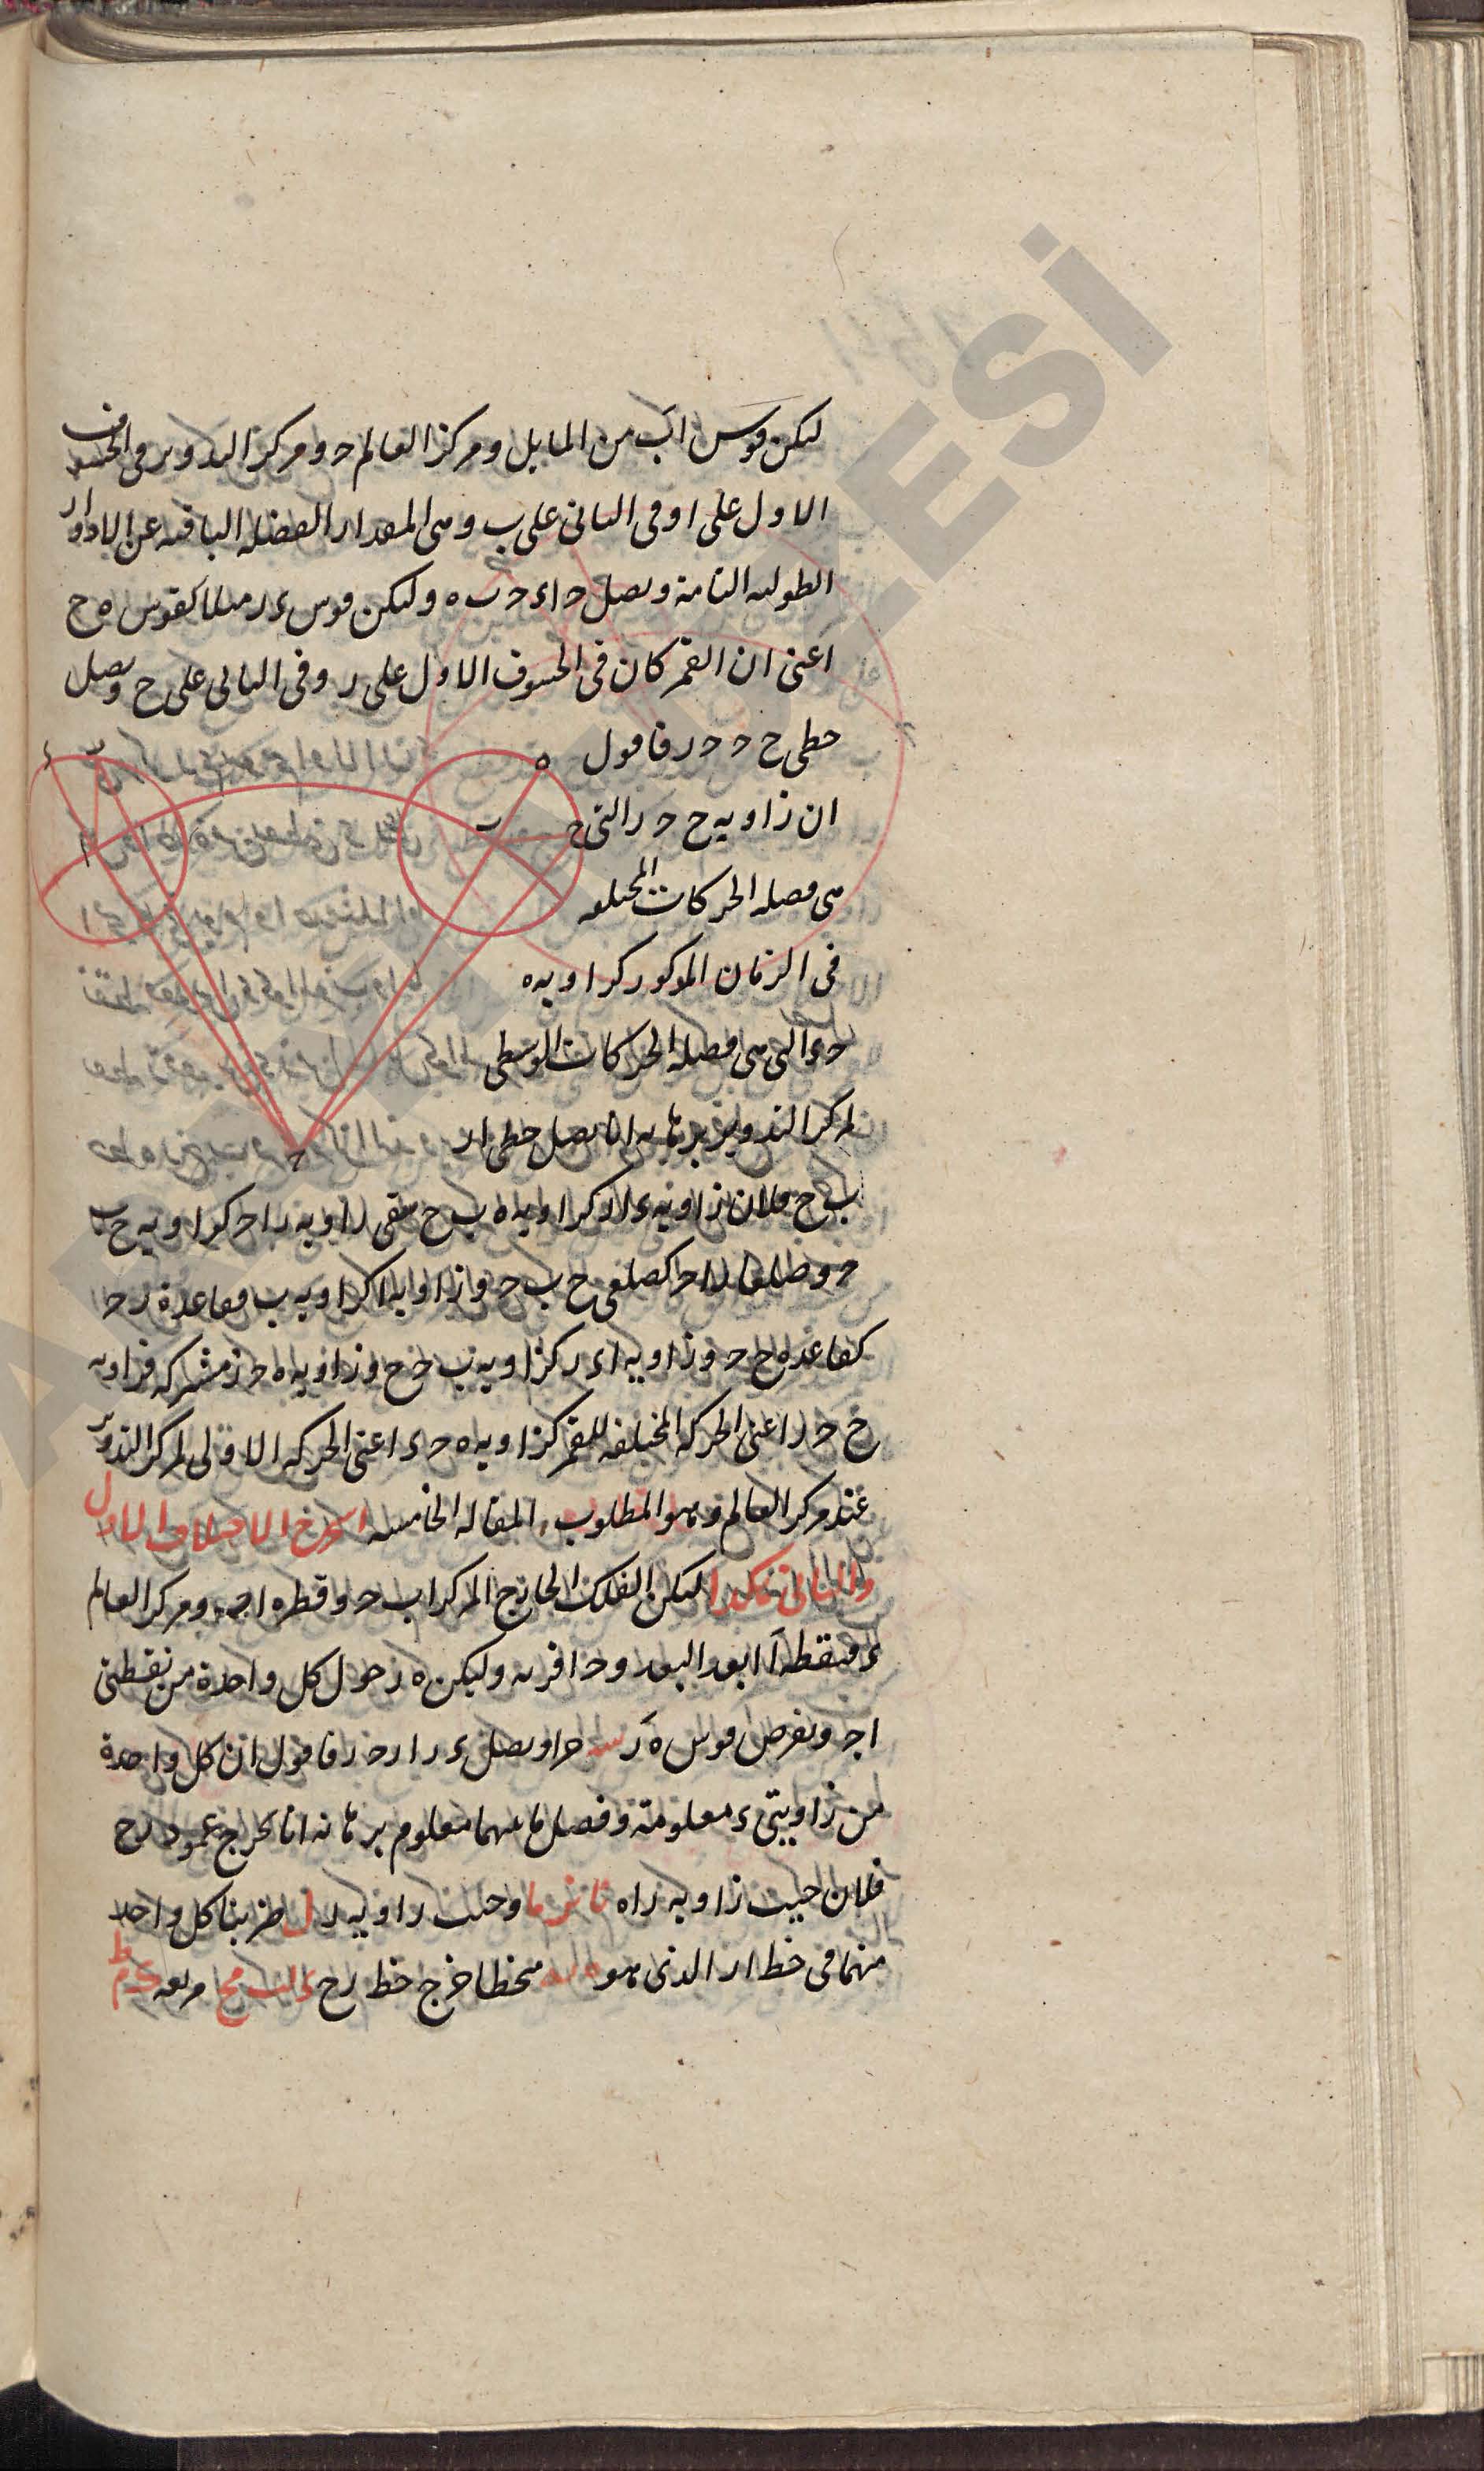 ليكن قوس اب من المايل ومركز العالم ح ومركز التدوير فى الخسوف
الاول على ا وفى الثانى على ب وهى المقدار الفضلة الباقيه عن الادوار
الطوليه التامة ونصل ح ا ء ح ب ه وليكن قوس ء ر مثلا كقوس ه ح
اعنى ان القمر كان فى الخسوف الاول على ر وفى الثانى على ح ونصل
خطى ح ح ح ر فاقول
ان زاويه ح ح ر التى
هى فصله الحركات المختلفه
فى الزمان المذكور كزاويه ه
ح ء التى هى فصله الحركات الوسطى
لمركز التدوير برهانه انا نصل خطى ا ر
ب ح فلان زاويه ء ا ر كزاويه ه ب ح تبقى زاويه ر ا ح كزاويه ح ب
ح وضلعا ر ا ح كضلعى ح ب ح وزاويه ا كزاويه ب فقاعدة ر ح
كقاعده ح ح وزاويه ا ء ر كزاويه ب ح ح وزاويه ه ح ر مشتركه فزاويه
ح ح ر اعنى الحركه المختلفه للقمر كزاويه ه ح ء اعنى الحركه الاولى لمركز التدوير
عند مركز العالم وهو المطلوب المقاله الخامسه الاختلاف الاول
والثانى هكذا ليكن الفلك الخارج المركز اب ح وقطره اج ومركز العالم
ء فنقطة ا ابعد البعد و ح اقربه وليكن ه ر حول كل واحدة من نقطتى
اج ونفرض قوس ه ر جزاو نصل ء ر ا ر ح ر فاقول ان كل واحدة
من زاويتى ء معلومة وفضل ما بينهما معلوم برهانه انا نخرج عمود ر ح
فلان جيب زاويه ر ا ه وجيب زاويه ر ضربنا كل واحد
منهما فى خط ا ر الذى هو منحطا خرج خط ر ح مربعه